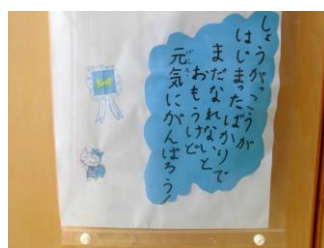 しょうがっこうが
はじまったばかりで
まだなれないと
おもうけど
元気にがんばろう!